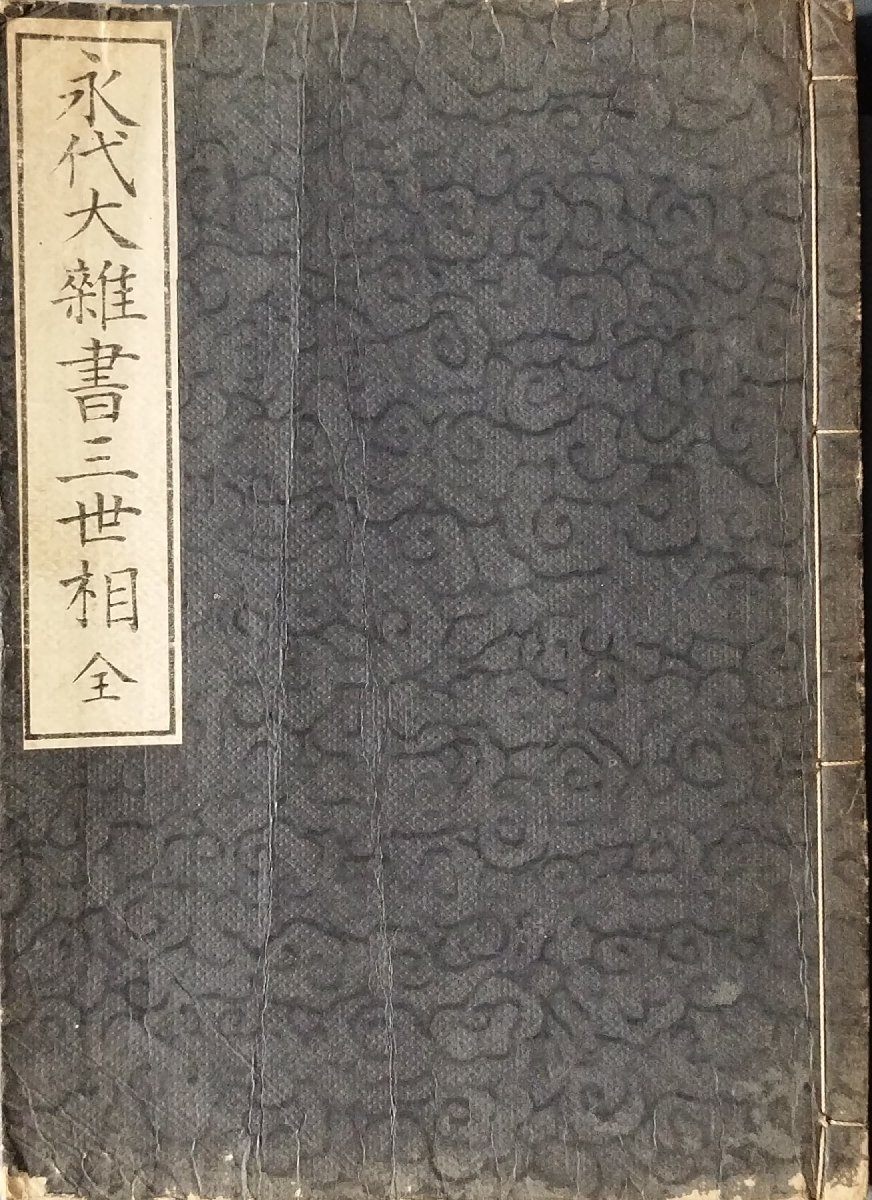 永代大雜書三世相全